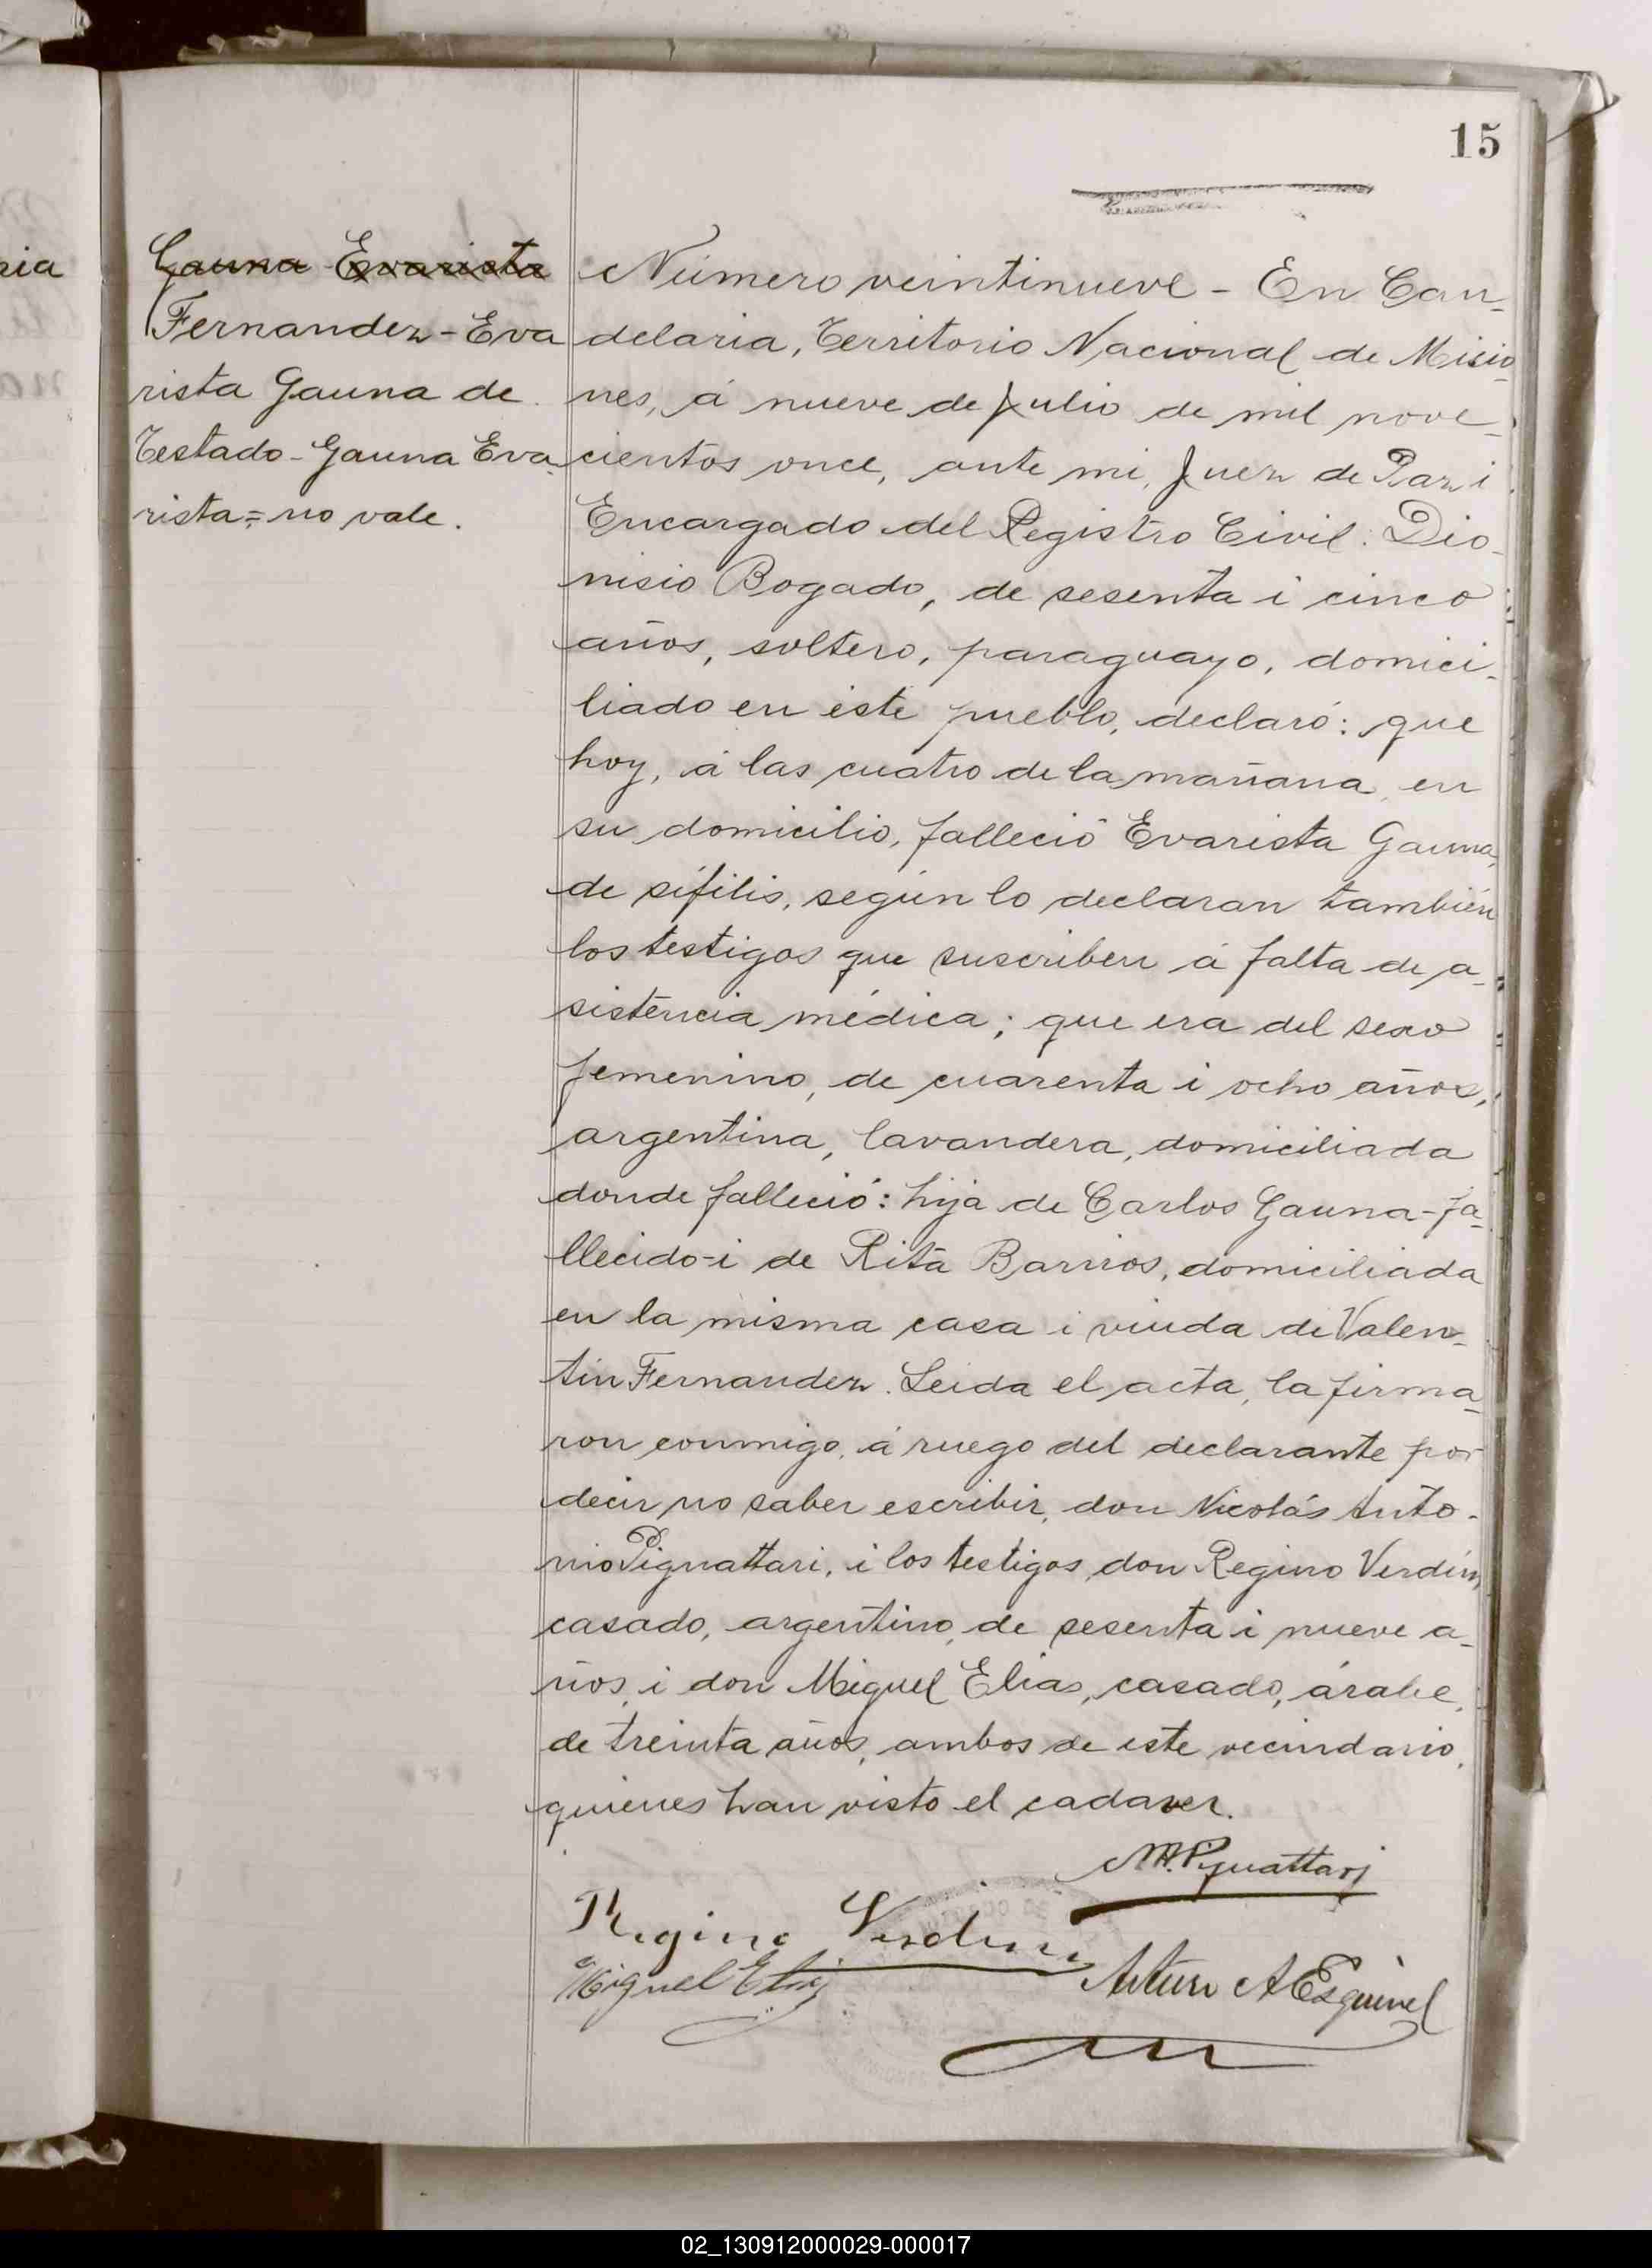 15
ria
Gauna Evarista
Fernandez - Eva
rista Gauna de
Testado - Gauna Eva
rista = no vale.
Número veintinueve - En Can_
delaria, Territorio Nacional de Misio_
nes, á nueve de Julio de mil nove_
cientos once, ante mi, Juez de Paz i
Encargado del Registro Civil: Dio_
nisio Bogado, de sesenta i cinco
años, soltero, paraguayo, domici_
liado en éste pueblo, declaró: que
hoy, á las cuatro de la mañana, en
su domicilio, falleció Evarista Gauna,
de sífilis, según lo declaran también
los testigos que suscriben á falta de a_
sistencia médica; que era del sexo
femenino, de cuarenta i ocho años,
argentina, lavandera, domiciliada
donde falleció: hija de Carlos Gauna - fa_
llecido - i de Rita Barrios, domiciliada
en la misma casa i viuda de Valen_
tin Fernandez. Leida el acta, la firma_
ron conmigo, á ruego del declarante por
decir no saber escribir, don Nicolás Anto_
nio Pignattari, i los testigos don Regino Verdún,
casado, argentino, de sesenta i nueve a_
ños, i don Miguel Elias, casado, árabe,
de treinta años, ambos de este vecindario,
quienes han visto el cadaver.
NA. Pignattari
Regino Verdun
Miguel Elias
Arturo A Esquivel
02_130912000029-000017